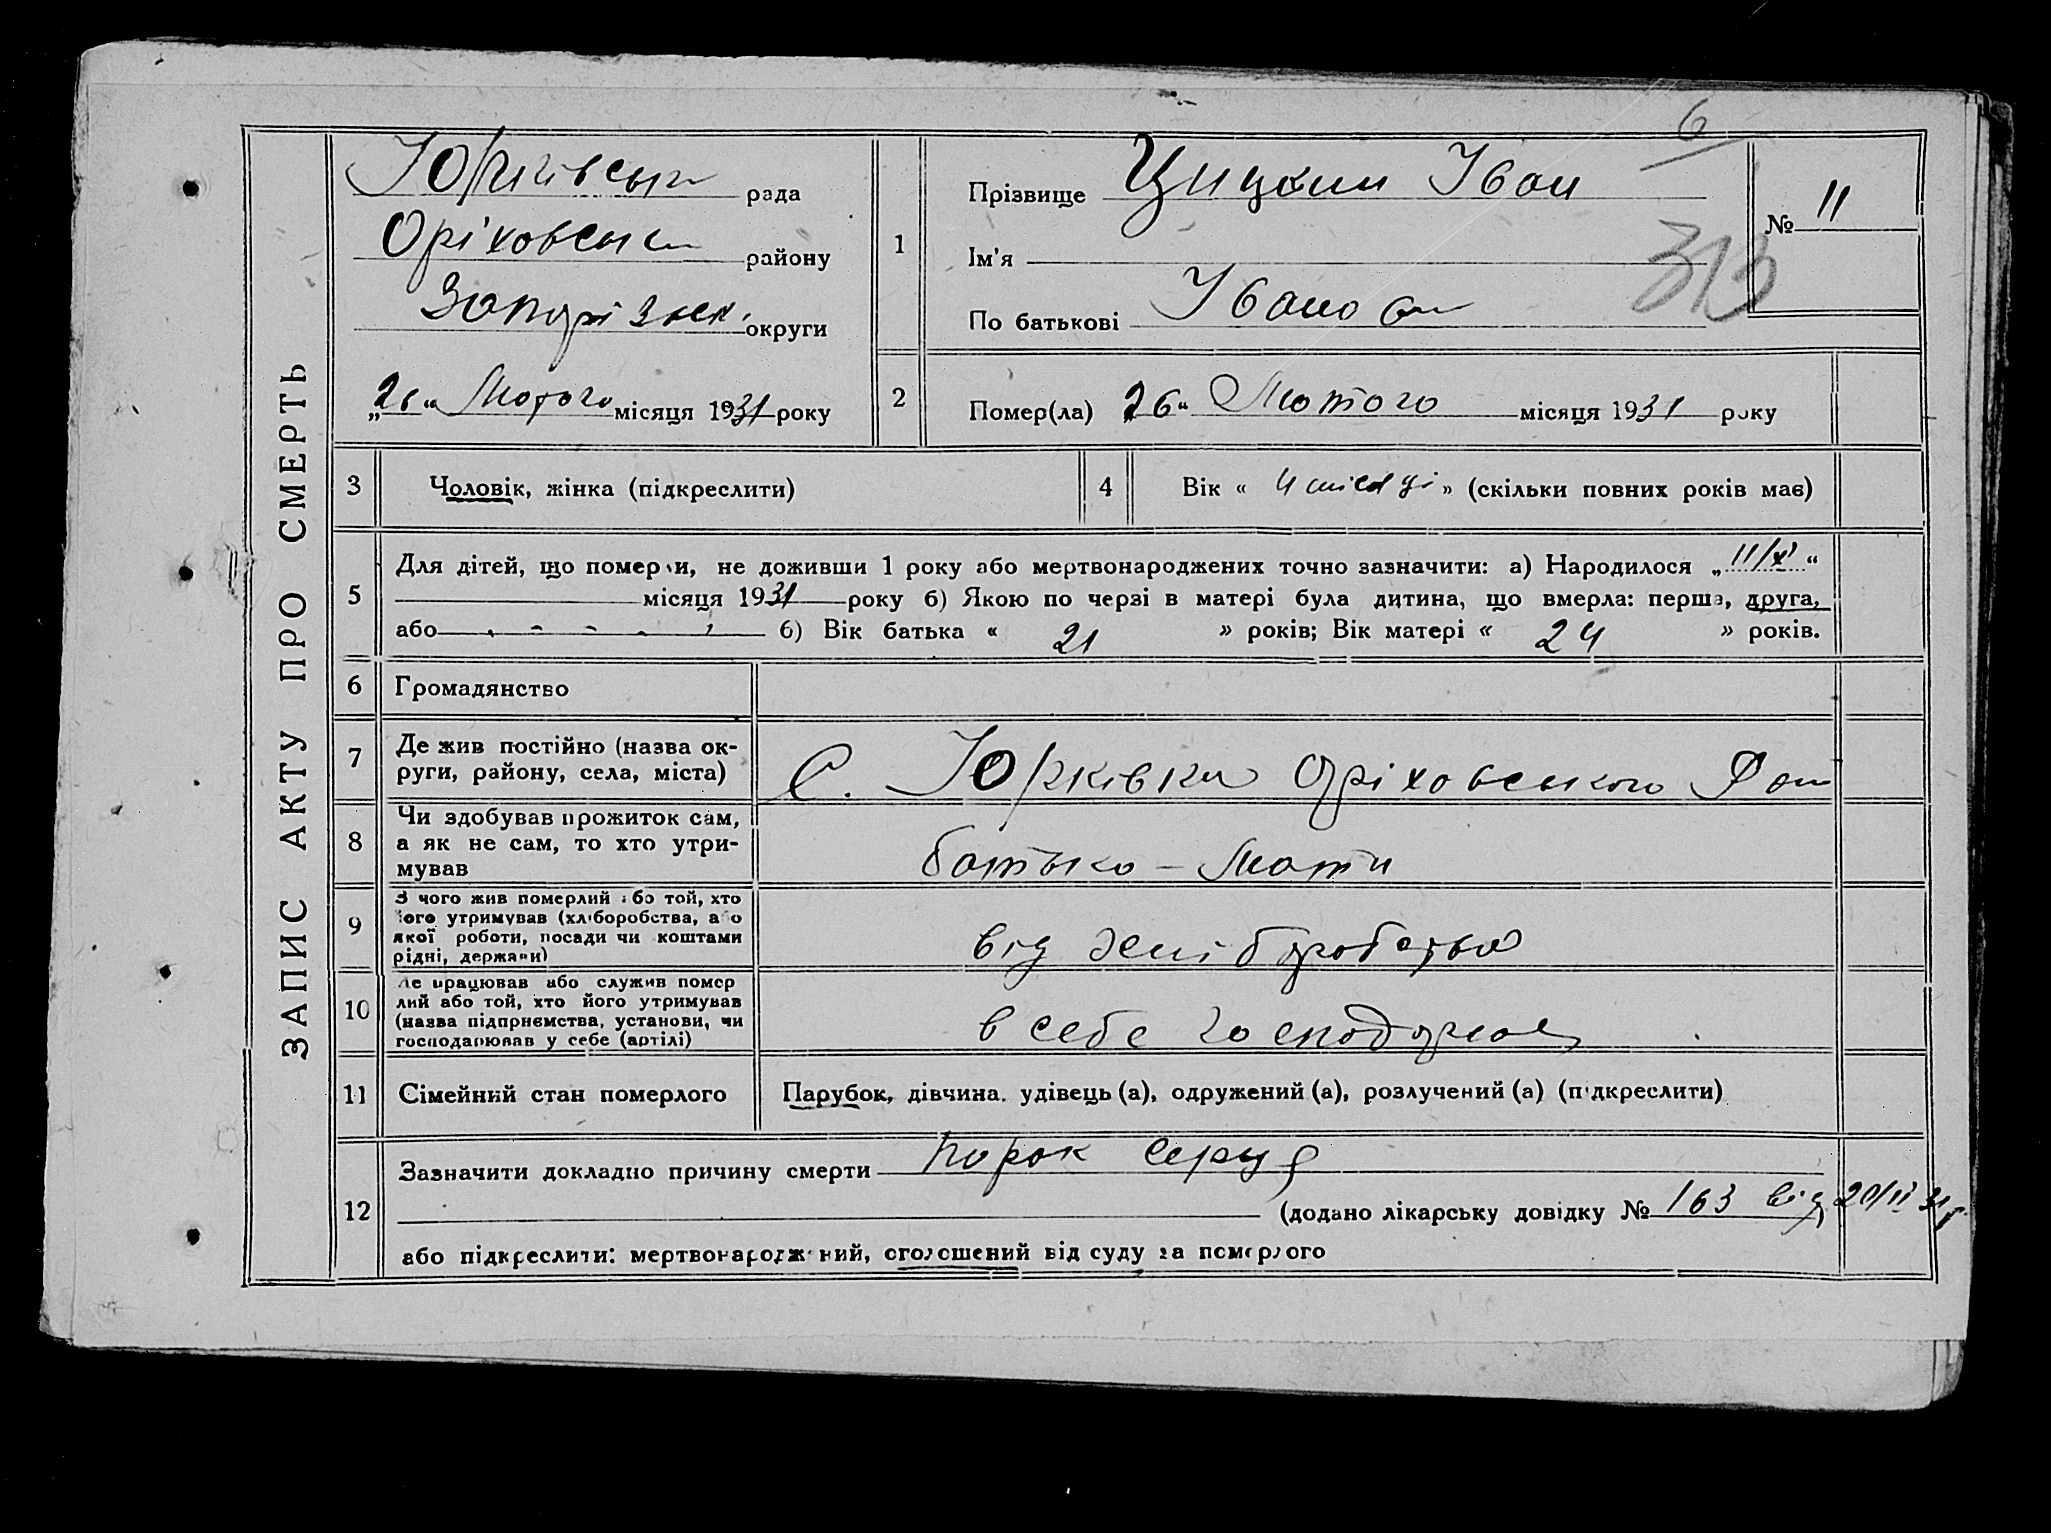 ЗАПИС АКТУ ПРО СМЕРТЬ
6
Юрківськ рада
Оріховськ району
Запорізьк. округи
„26“ Лютого місяця 1931 року
1
Прізвище Іван
Ім'я
По батькові Іванов
№ 11
313
2
Помер(ла) 26“ Лютого місяця 1931 року
3
Чоловік, жінка (підкреслити)
4
Вік « 4 місяці » (скільки повних років має)
5
Для дітей, що померли, не доживши 1 року або мертвонароджених точно зазначити: а) Народилося „11/X“
місяця 1931 року б) Якою по черзі в матері була дитина, що вмерла: перша, друга,
або 6) Вік батька « 21 » років; Вік матері « 24 » років.
6
Громадянство
7
Де жив постійно (назва ок-
руги, району, села, міста)
С. Юрківка Оріховського Рай
8
Чи здобував прожиток сам,
а як не сам, то хто утри-
мував
батько - Мати
9
З чого жив померлий або той, хто
його утримував (хліборобства, або
якої роботи, посади чи коштами
рідні, держави)
від хліборобства
10
Де працював або служив помер
лий або той, хто його утримував
(назва підприємства, установи, чи
господарював у себе (артілі)
в себе господарював
11
Сімейний стан померлого
Парубок, дівчина. удівець (а), одружений (а), розлучений (а) (підкреслити)
12
Зазначити докладно причину смерти порок серця
(додано лікарську довідку № 163 від 20/II 31 р.)
або підкреслити: мертвонароджений, оголошений від суду за померлого